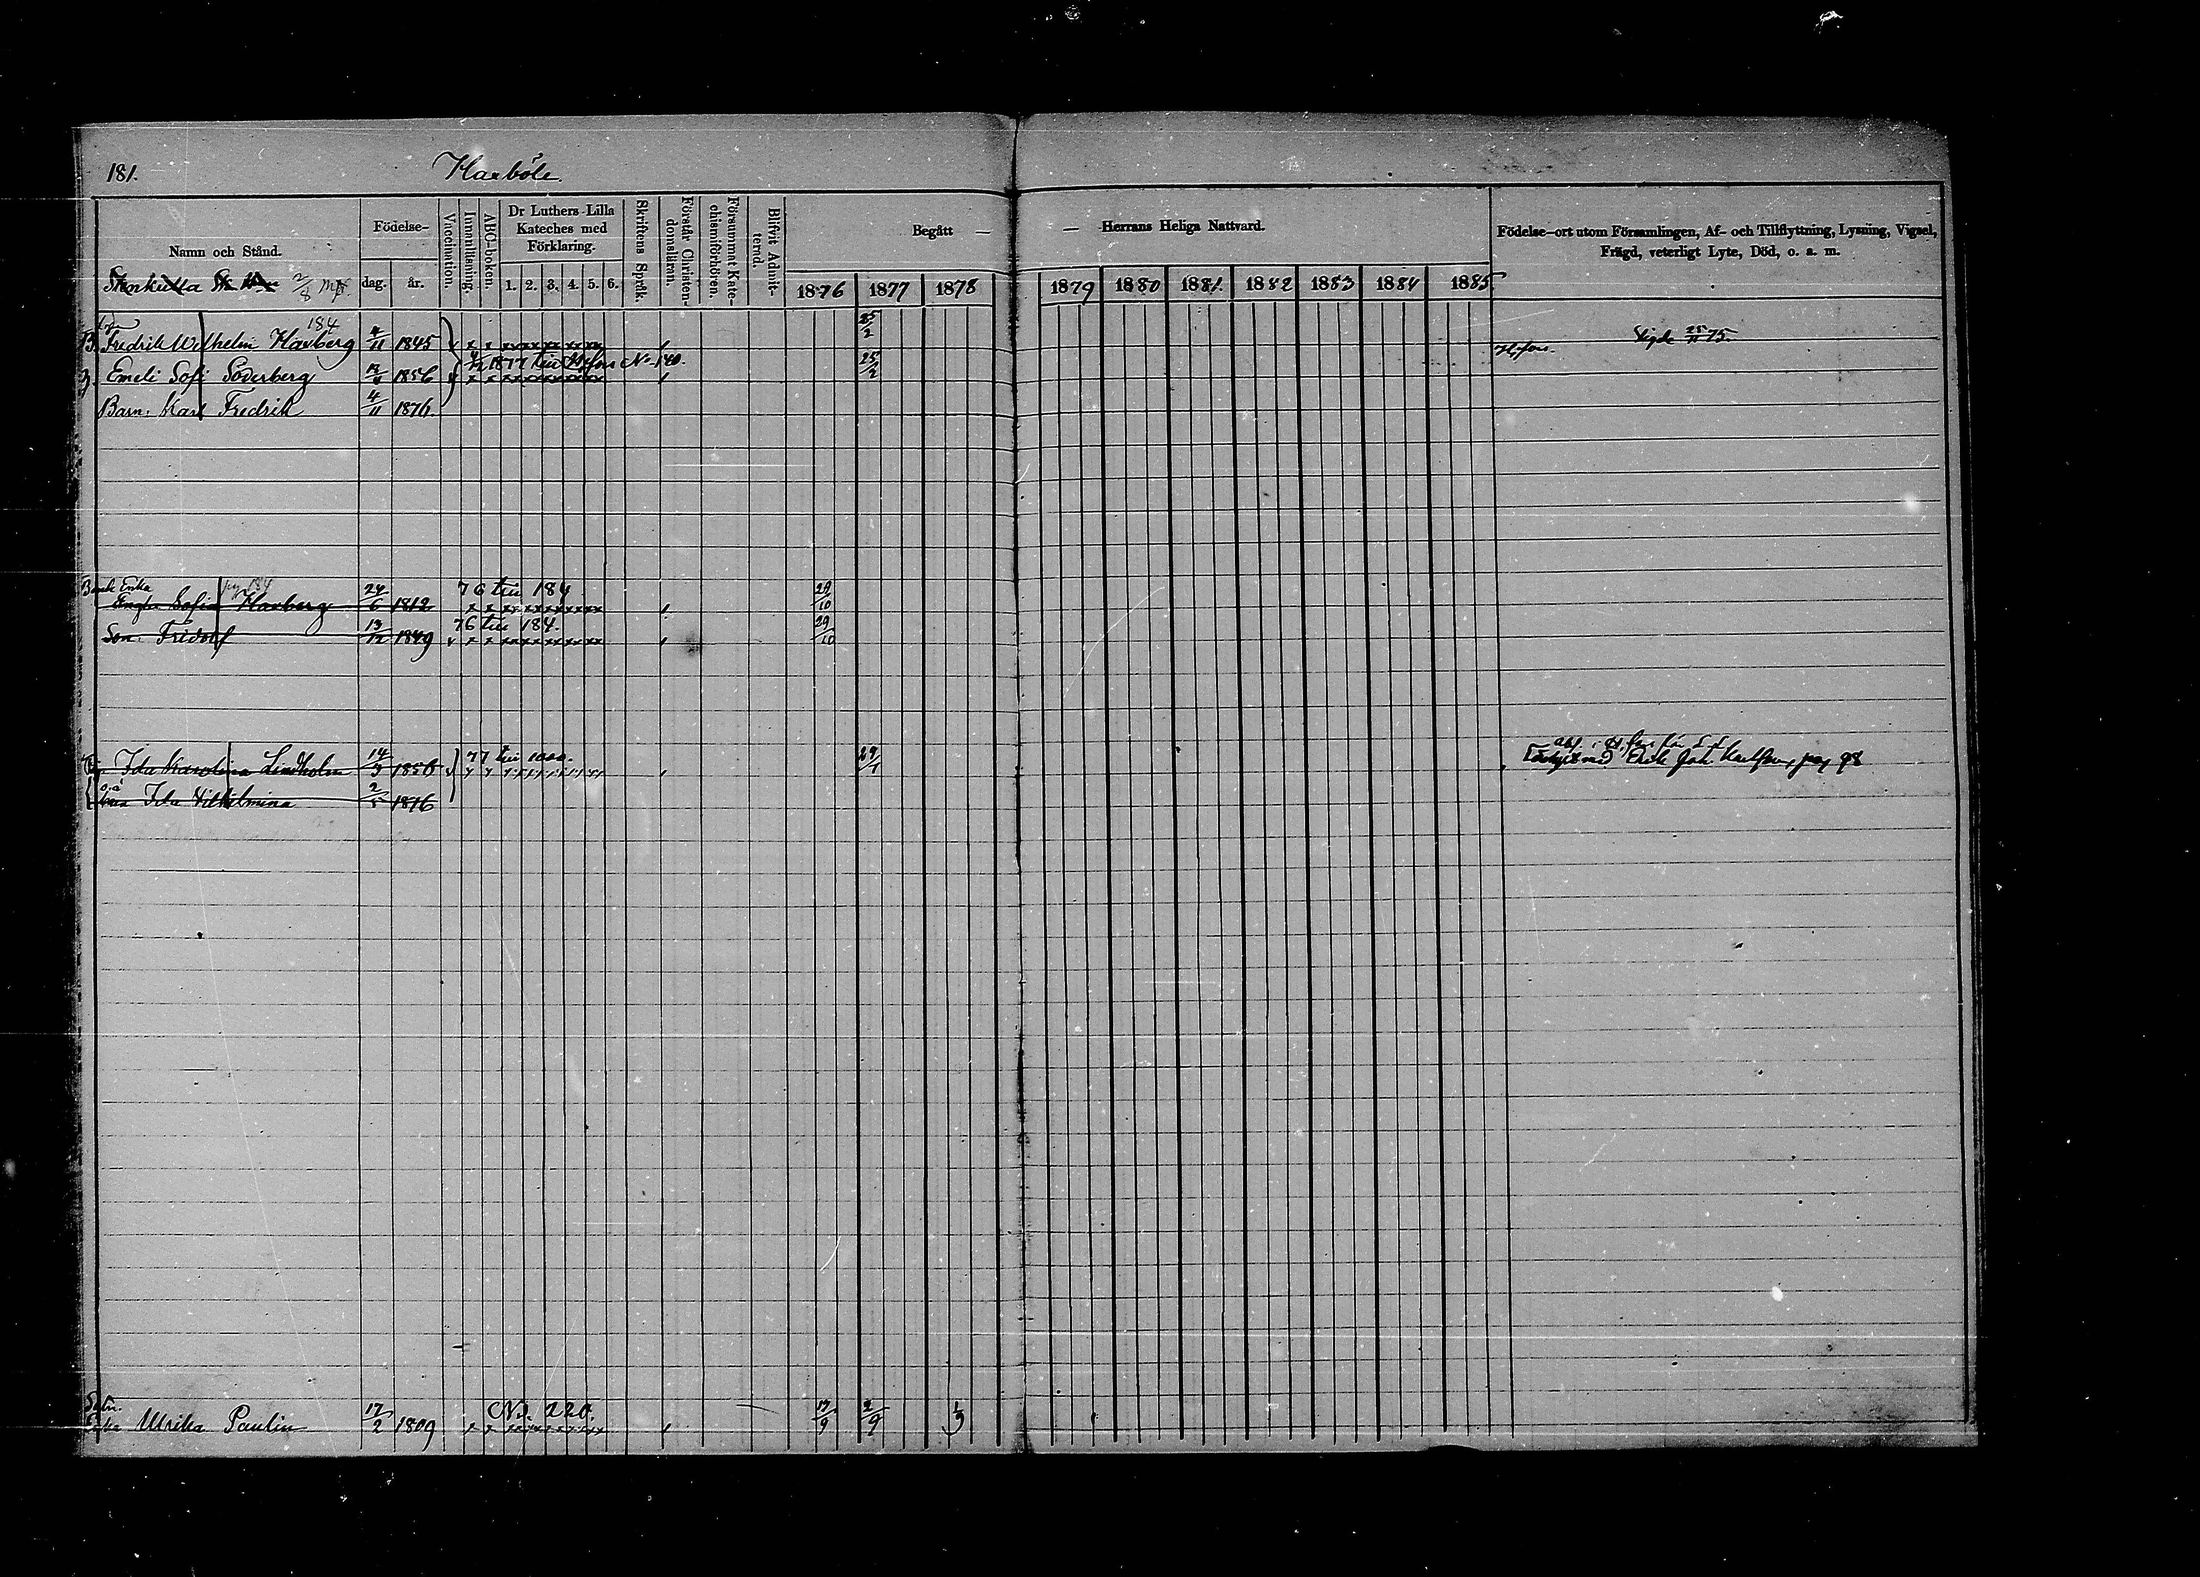 181. Haxböle
Namn och Stånd.
Födelse-
dag. år.
Vaccination.
Innanläsning.
ABC-boken.
Dr Luthers Lilla Kateches med Förklaring.
1. 2. 3. 4. 5. 6.
Skriftens Språk.
Förstår Christendomsläran.
Försummat Katechismiförhören.
Blifvit Admitterad.
Begått — — Herrans Heliga Nattvard.
1876 1877 1878 1879 1880 1881 1882 1883 1884 1885
Födelse-ort utom Församlingen, Af- och Tillflyttning, Lysning, Vigsel,
Frägd, veterligt Lyte, Död, o. a. m.
2/8
184
Fredrik Wilhelm Haxberg 4/11 1845 v x x xx xx xx xx xx 25/2 Vigde 25/11 75.
1877 till Hfors No 140. Hfors.
Emeli Sofi Söderberg 1856 v x x 25/2
Barn: Karl Fredrik 4/11 1876
Enka pag 184 76 till 184
Sofia Haxberg 24/6 1812 x x 29/10
76 till 184.
Son: Fridolf 13/12 1849 v x x 29/10
77 till 1000.
Ida Karolina Lindholm 14/3 1856 v 29/1
med Erik Joh. pag 98
o.ä.
Ida Vilhelmina 2/5 1876
No 220.
Enka Ulrika Paulin 17/2 1809 x x 17/9 2/9 1/9